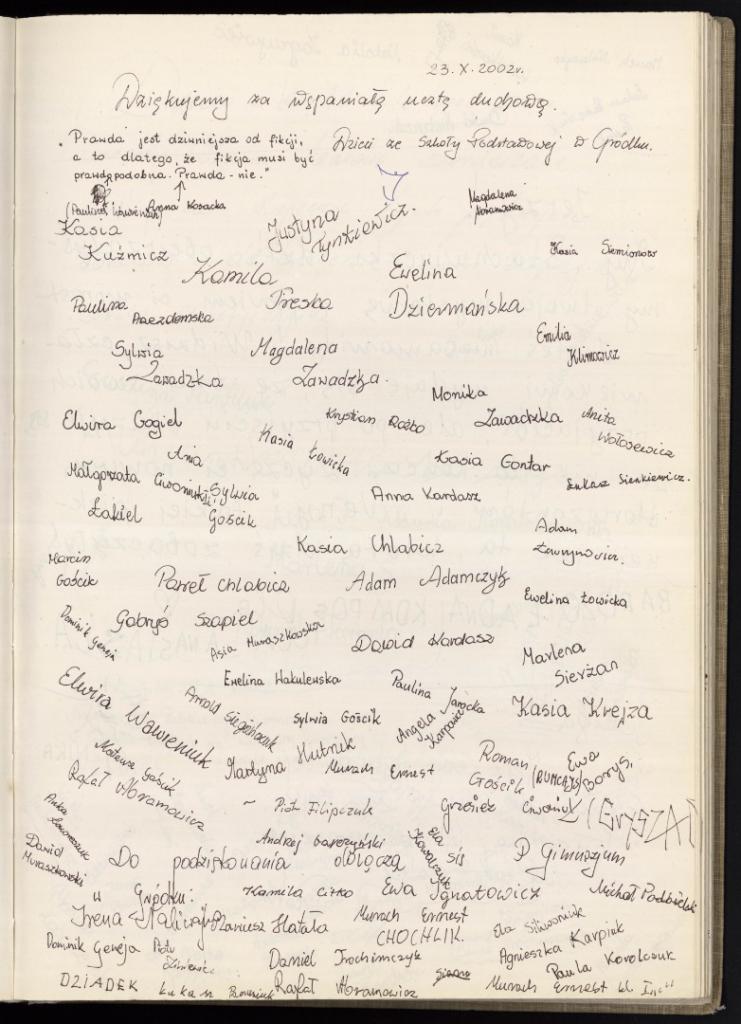 23.X.2002r.
Dziękujemy za wspaniałą ucztę duchową.
„Prawda jest dziwniejsza od fikcji, Dzieci ze Szkoły Podstawowej w Gródku.
a to dlatego, że fikcja musi być
prawdopodobna. Prawda - nie."
(Paulina Wawreniuk) Kosacka
Magdalena
Abramowicz
Justyna
Tynkiewicz.
Kasia
Kuźmicz
Kasia Siemionow
Kamila
Treska
Ewelina
Dziermańska
Paulina
Sylwia
Zawadzka
Magdalena
Zawadzka
Emilia
Klimowicz
Monika
Zawadzka
Elwira Gogiel
Krystian Rożko
Anita
Wołosewicz
Ania
Kasia Łowicka
Kasia Gontar
Małgorzata
Łakiel
Sylwia
Gościk
Anna Kardasz
Łukasz Sienkiewicz.
Kasia Chlabicz
Adam
Ławrynowicz.
Marcin
Gościk
Paweł Chlabicz
Adam Adamczyk
Ewelina Łowicka
Dominik Geneja
Gabryś Szapiel
Asia Muraszkowska
Dawid Kardasz
Marlena
Sierżan
Elwira Wawreniuk
Ewelina Hakulewska
Arnold
Sylwia Gościk
Paulina Jarocka
Angela
Karpowicz
Kasia Krejza
Mateusz Gościk
Rafał Abramowicz
Martyna Hutnik
Murach Ernest
Roman
Gościk (RUMCAJS)
Ewa
Borys,
~ Piotr Filipczuk
Grzesiek
Anka
Dawid
Muraszkowski
Andrzej Garczyński
Ela
Kowalczuk
Do podziękowania dołącza się P Gimnazjum
w Gródku:
Kamila Citko
Ewa Ignatowicz
Michał Podbielski
Irena Nalivajko
Mariusz Hatała
Murach Ernest
CHOCHLIK.
Ela
Dominik Geneja
Piotr
Daniel Trochimczyk
Agnieszka Karpiuk
Paula Korolczuk
DZIADEK
Łukasz
Rafał Abramowicz
Murach Ernest kl.